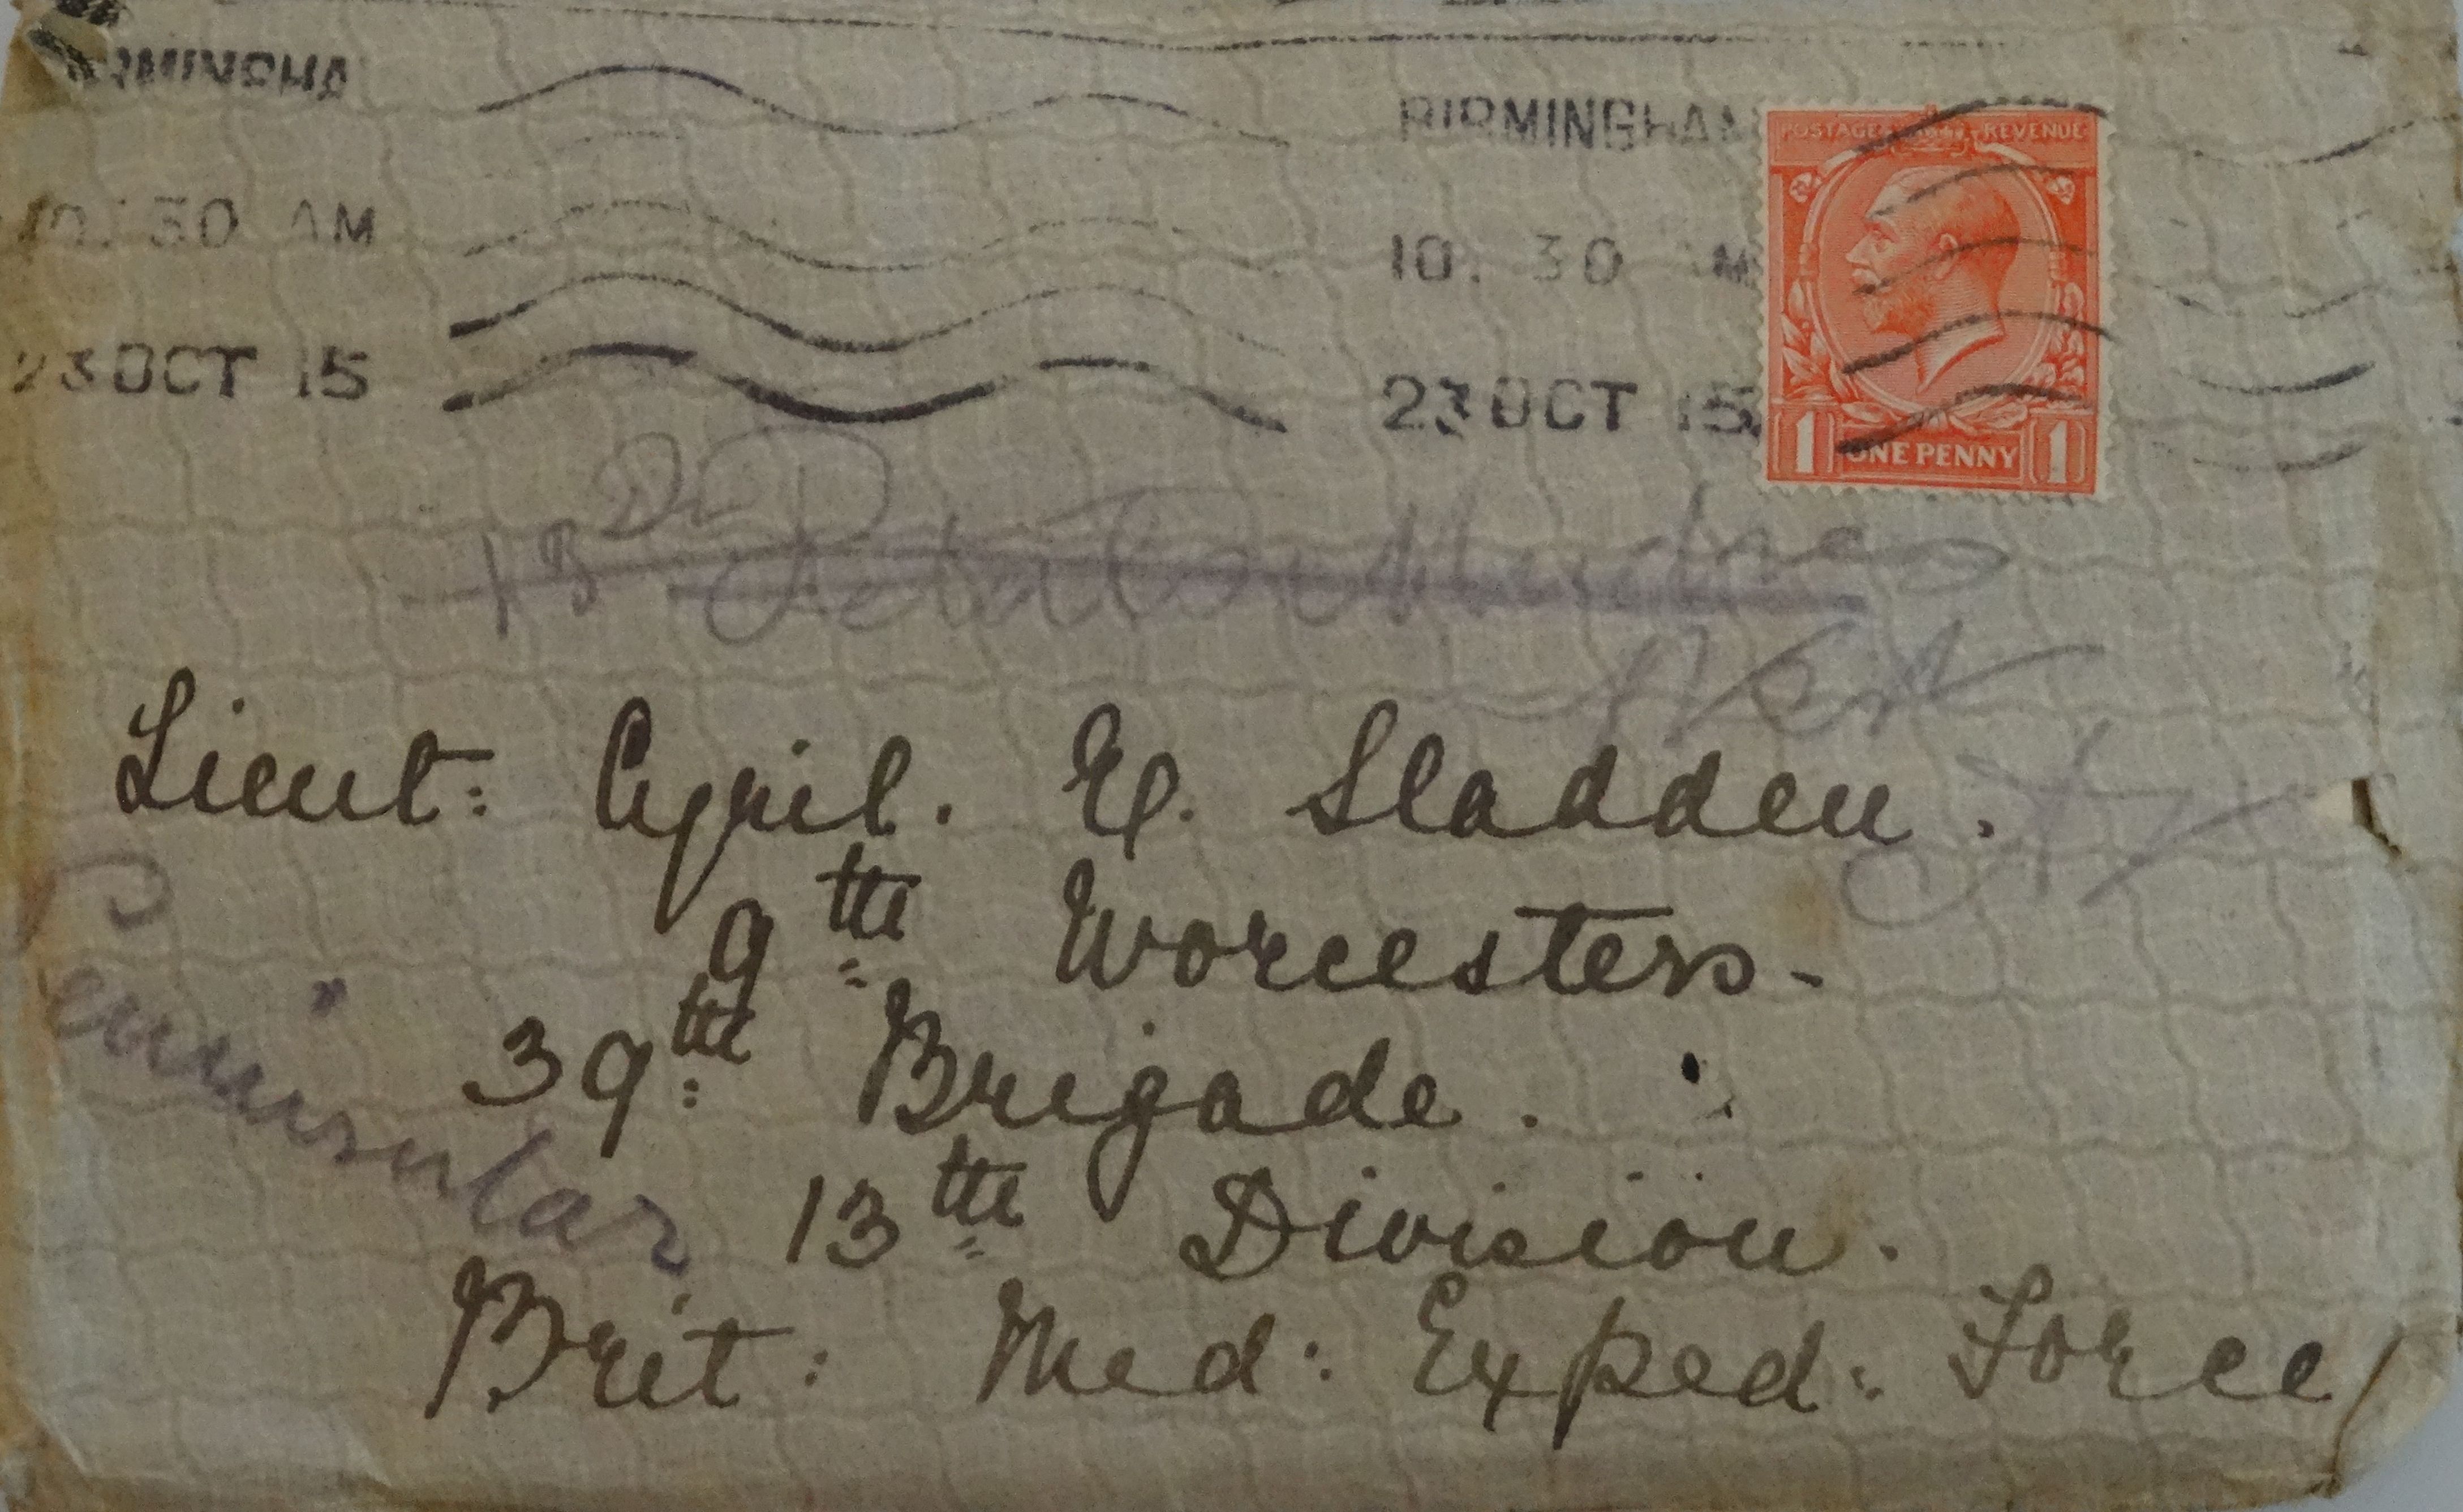 BIRMINGHAM
10. 30 AM
23 OCT 15
BIRMINGHAM
10. 30 AM
23 OCT 15
POSTAGE REVENUE
1 ONE PENNY 1
Lieut: Cyril. E. Sladden.
9th Worcesters-
39th Brigade.
13th Division.
Brit: Med: Exped: Force
Peninsular